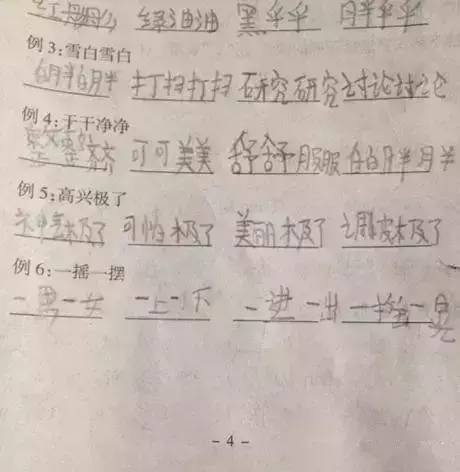 绿油油 黑乎乎 胖乎乎
例 3:雪白雪白
白胖白胖 打扫打扫 研究研究 讨论讨论
例 4:干干净净
整整齐齐 可可美美 舒舒服服 白白胖胖
例 5:高兴极了
神气极了 可怕极了 美丽极了 调皮极了
例 6:一摇一摆
一男一女 一上一下 一进一出 一 一
- 4 -